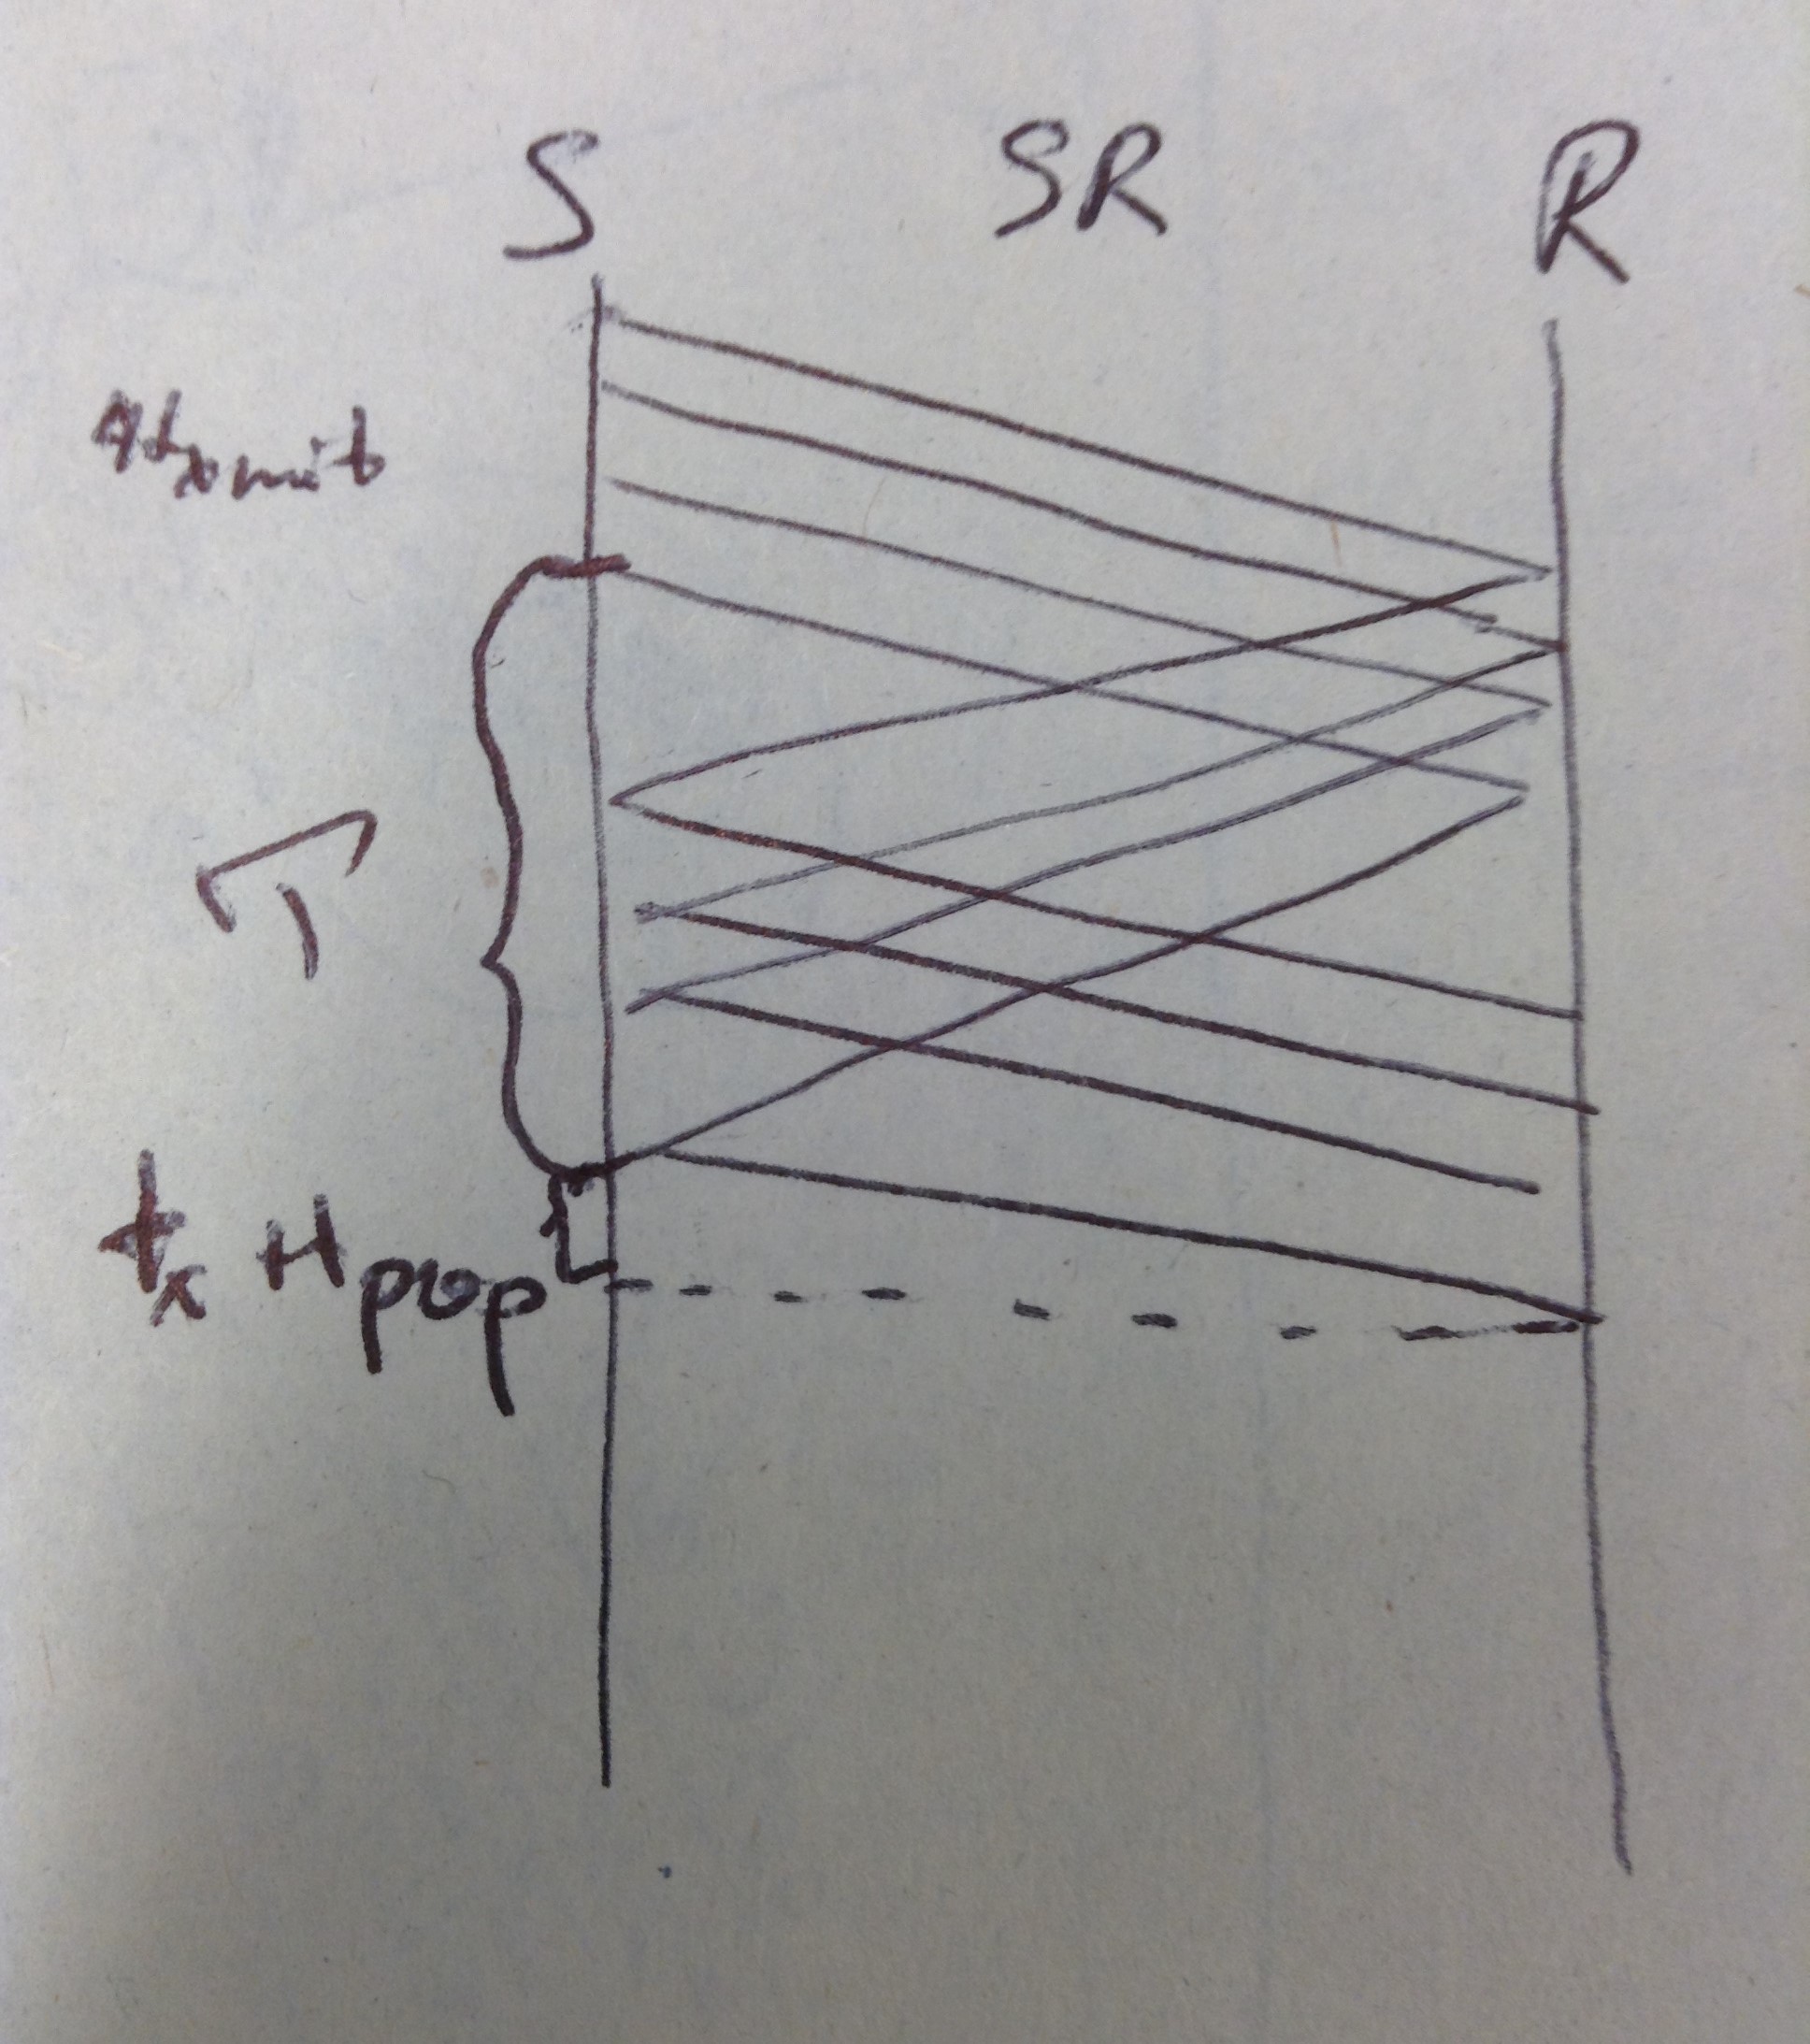 S SR R
4t_xmit
T
t_x +t_prop